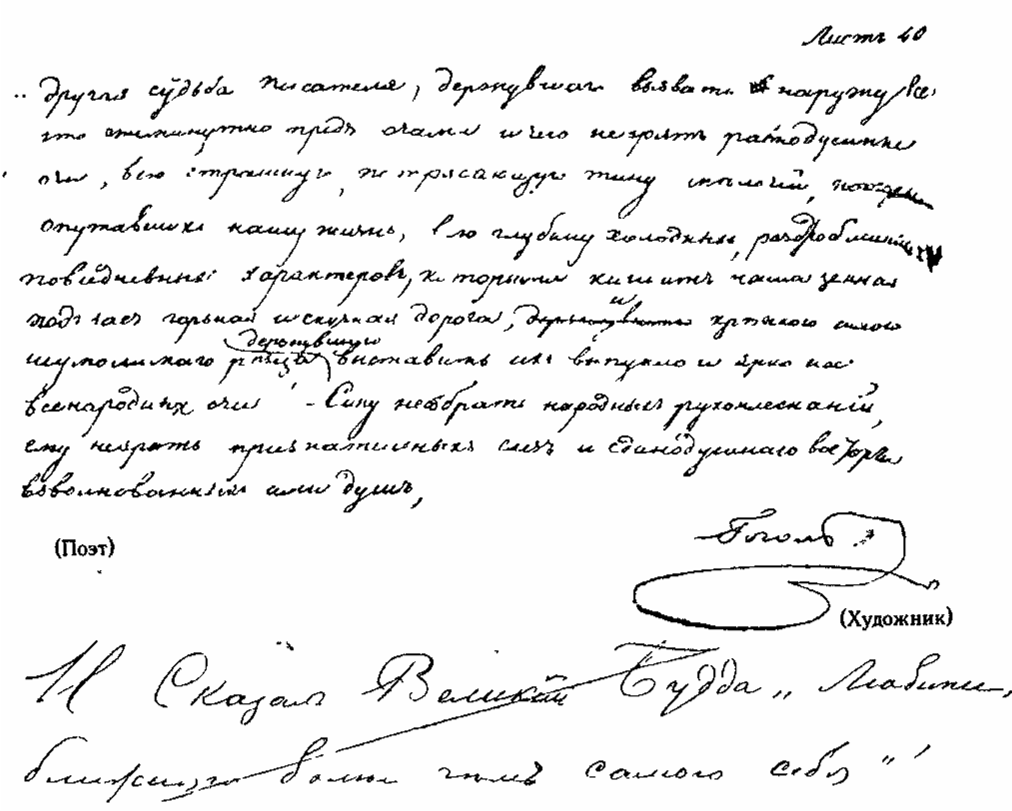 Листъ 40
другая судьба писателя, дерзнувшаго вызвать наружу все
что ежеминутно предъ очами и чего незрятъ равнодушные
очи, всю страшную, потрясающую тину мелочей,
опутавшихъ нашу жизнь, всю глубину холодныхъ, раздробленныхъ
повседневныхъ характеровъ, которыми кишитъ наша земная
подчасъ горькая и скучная дорога, и крѣпкою силою
дерзнувшаго
неумолимаго рѣзца выставить ихъ выпукло и ярко на
всенародныя очи! - Ему несобрать народныхъ рукоплесканій,
ему незрѣть признательныхъ слезъ и единодушнаго восторга
взволнованныхъ имъ душъ,
(Поэт)
Гоголь
(Художник)
И Сказалъ Великій Будда „Люби
ближняго болѣе чѣмъ самого себя"!